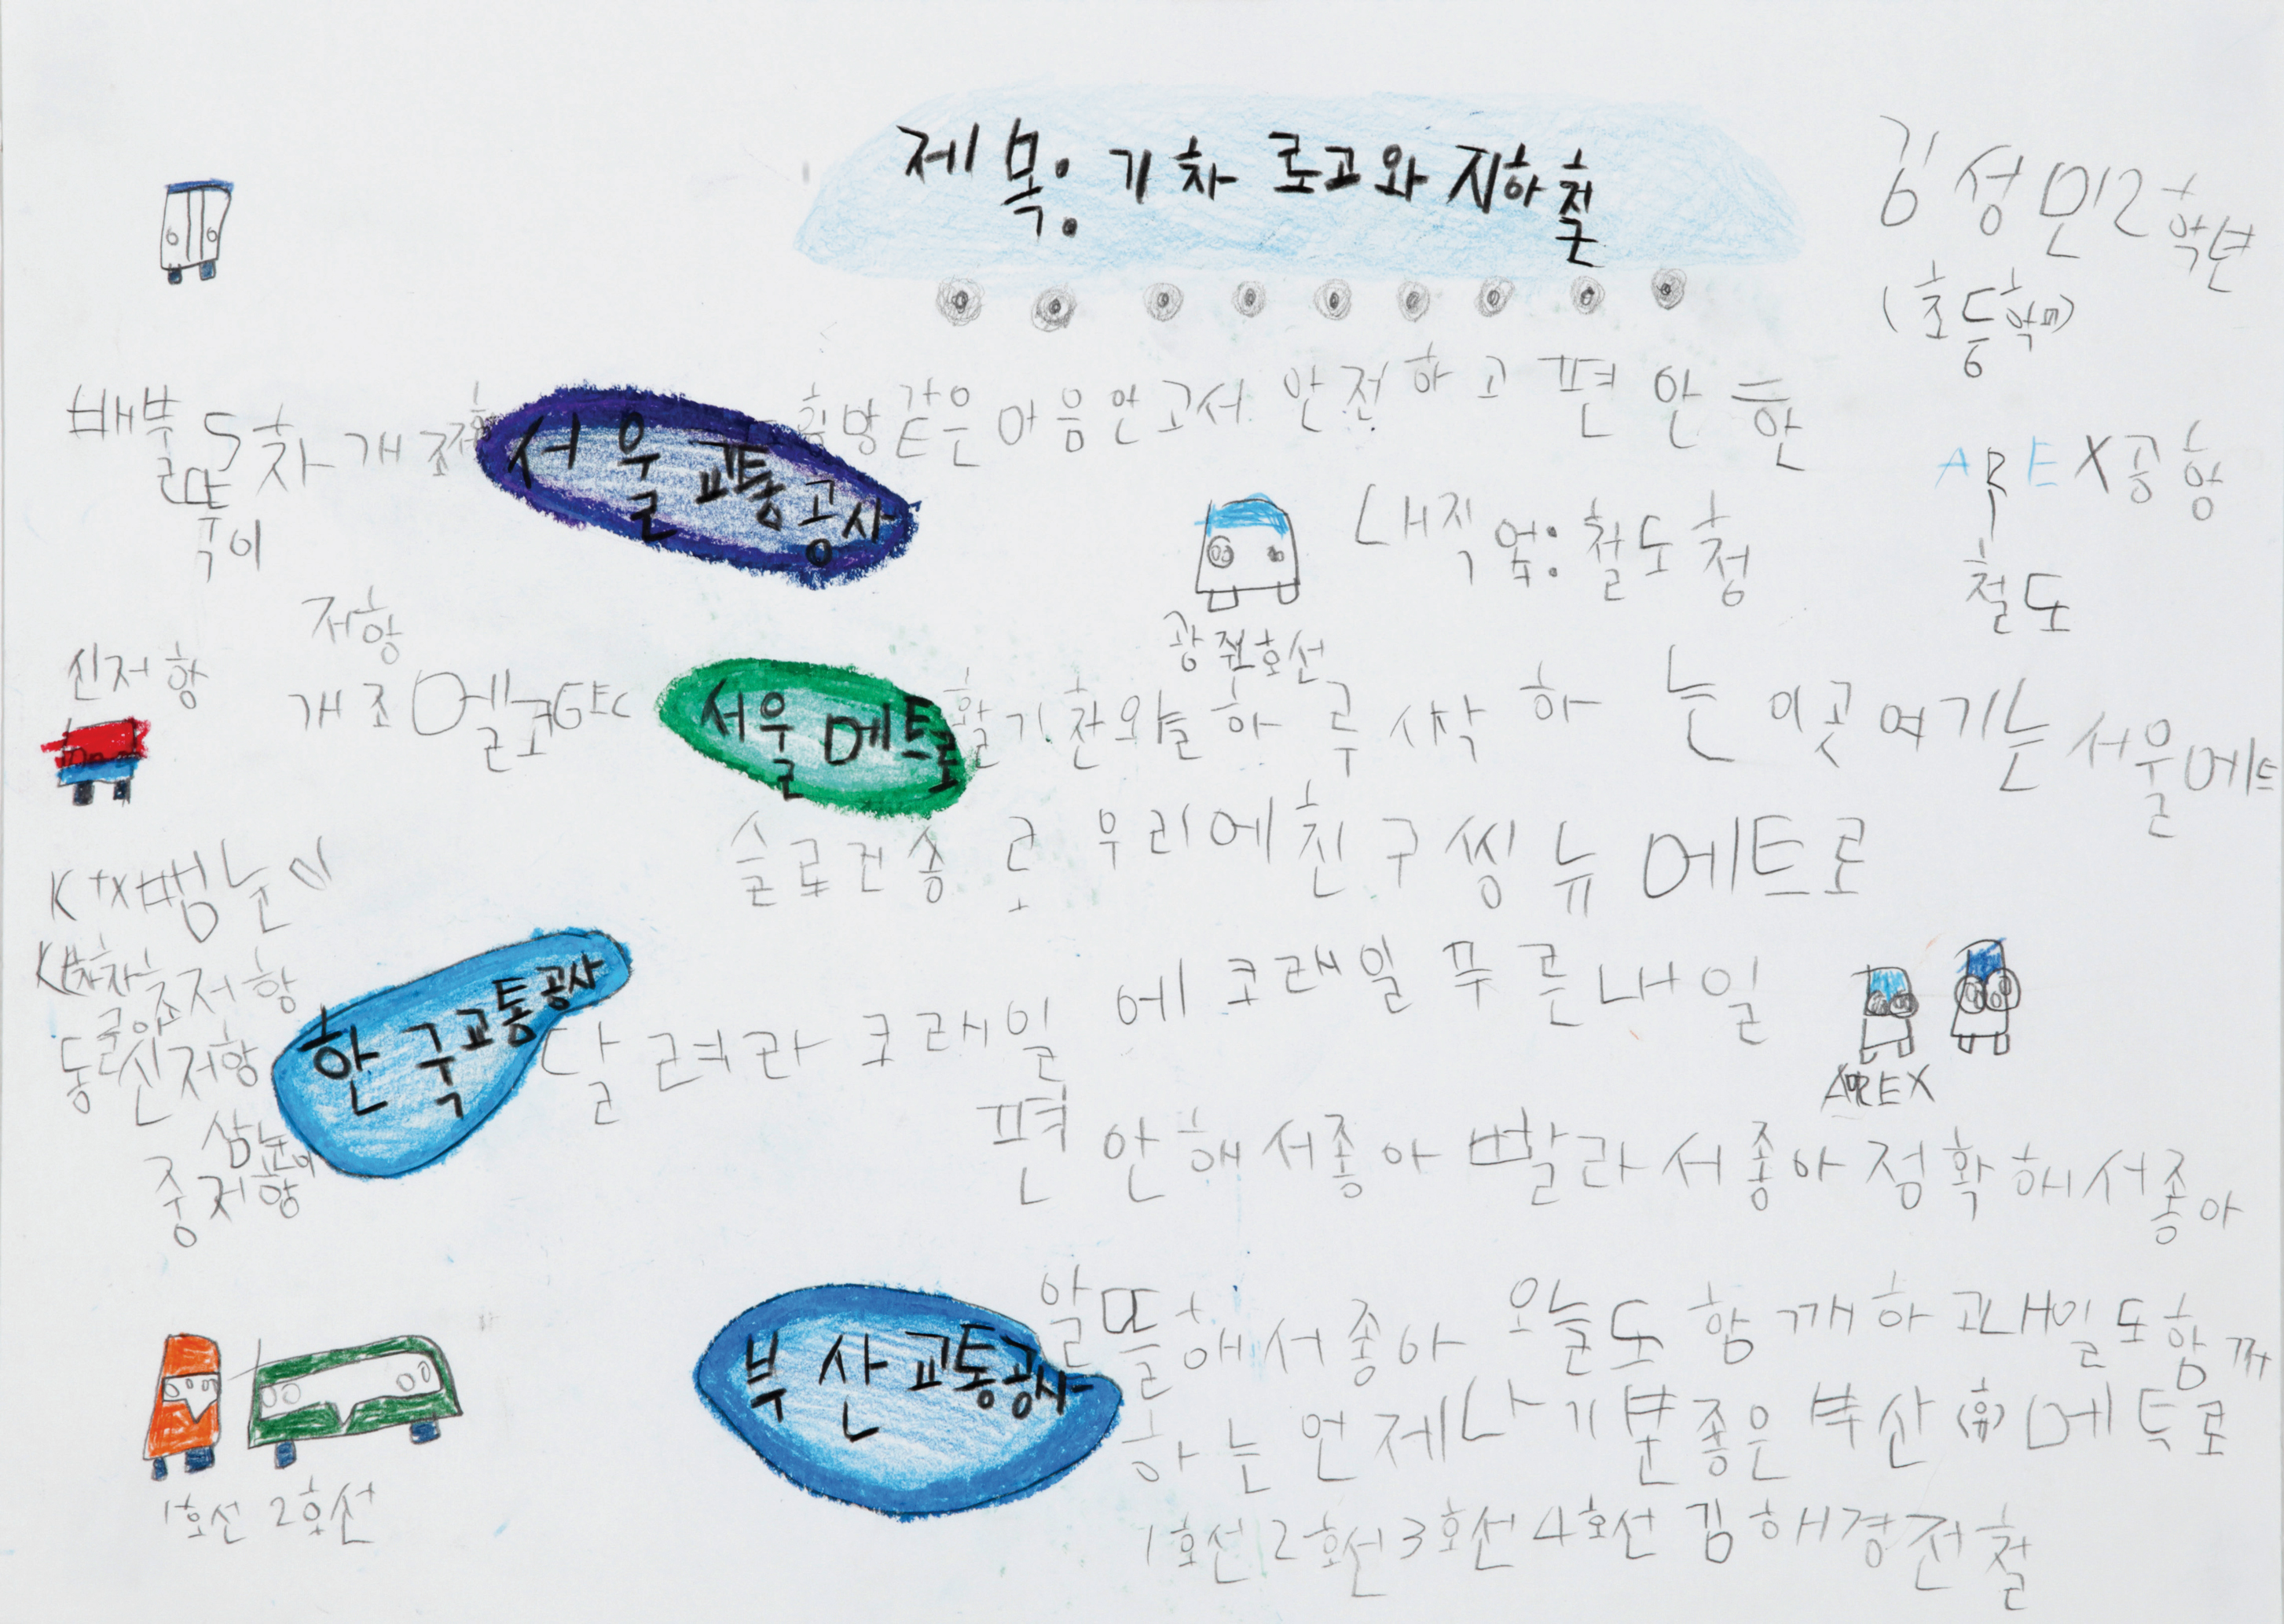 제목: 기차 로고와 지하철
김성민 2학년
(초등학교)
배불뚝이 5차 개조저항
서울교통공사
희망같은 마음 안고서 안전하고 편안한
AREX공항
철도
내직업: 철도청
광주1호선
신저항
저항
개조 멜코GEC
서울메트로
활기찬 오늘 하루 시작하는 이곳 여기는 서울메트
슬로건송 로 우리에 친구 씽 뉴메트로
KTX뱀눈이
동글이 신저항
중저항
한국교통공사
달려라 코레일
에코레일 푸른내일
AREX
편안해서좋아 빨라서좋아 정확해서좋아
부산교통공사
알뜰해서좋아 오늘도 함께하고 내일도 함께
하는 언제나 기분좋은 부산(휴)메트로
1호선 2호선
1호선 2호선 3호선 4호선 김해경전철